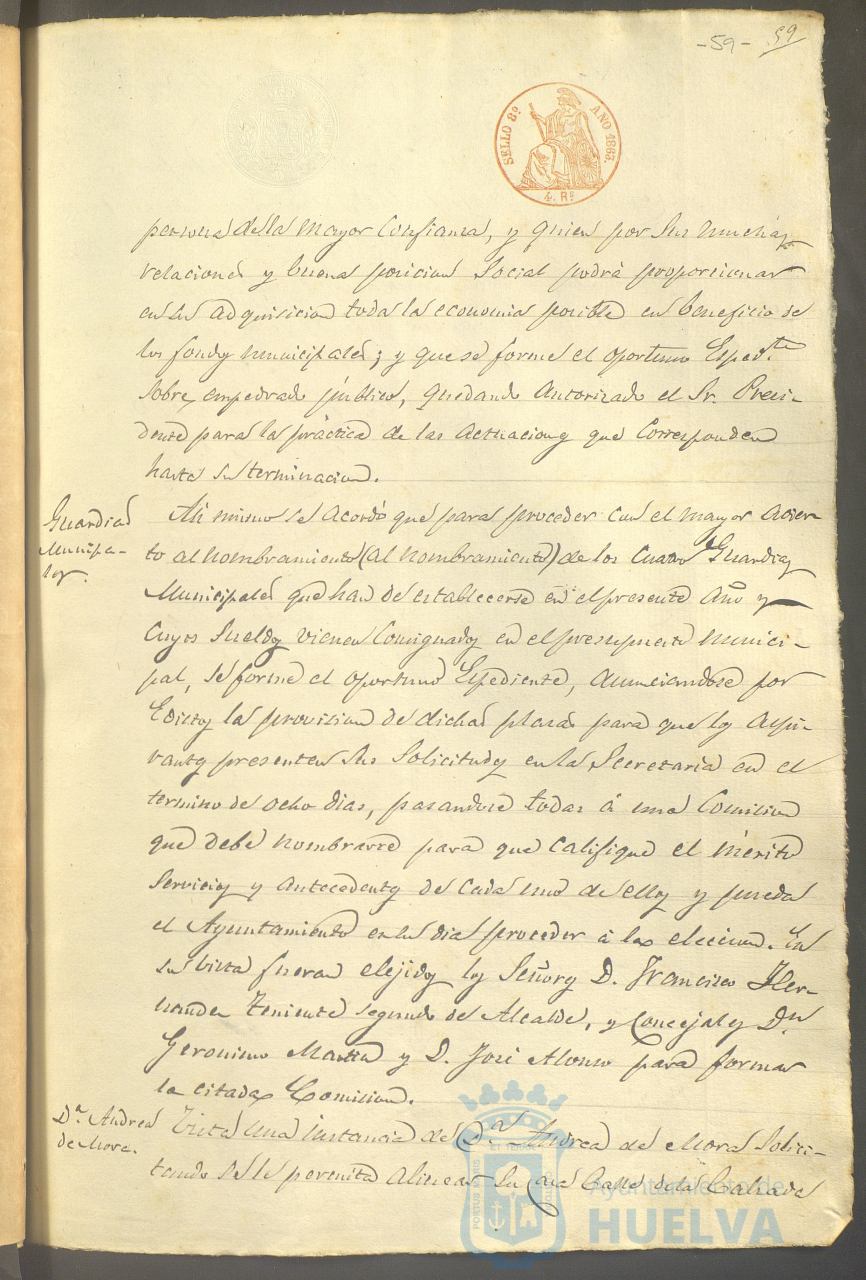 -59- 59
SELLO 8º AÑO 1863.
4. Rs
persona de la mayor confianza, y quien por sus muchas
relaciones y buena posicion Social podrá proporcionar
en su adquisicion toda la economia posible en beneficio de
los fondos municipales; y que se forme el oportuno Esped.te
sobre empedrado público, quedando autorizado el Sr. Presi-
dente para la práctica de las actuaciones que correspondan
hasta su terminacion.
Guardias
Municipa-
les.
Asi mismo se acordó que para proceder con el mayor acier-
to al nombramiento (al nombramiento) de los cuatro Guardias
Municipales que han de establecerse en el presente año y
cuyos sueldos vienen consignados en el presupuesto munici-
pal, se forme el oportuno Espediente, anunciandose por
Edictos la provision de dichas plazas para que los aspi-
rantes presenten sus solicitudes en la Secretaria en el
termino de ocho dias, pasandose todas á una Comision
que debe nombrarse para que califique el mérito
servicios y antecedentes de cada uno de ellos y pueda
el Ayuntamiento en su dia proceder á la eleccion. En
su vista fueron elejidos los Señores D. Francisco Her-
nandez Teniente segundo de Alcalde, y Concejales Dn
Geronimo Martin y D. José Alonso para formar
la citada Comision.
D.ª Andrea
de Mora.
Vista una instancia de D.ª Andrea de Mora solici-
tando se le permita alinear su casa Calle de la Calzada
PORTUS MARIS ET TERRAE CUSTODIA
Ayuntamiento de
HUELVA